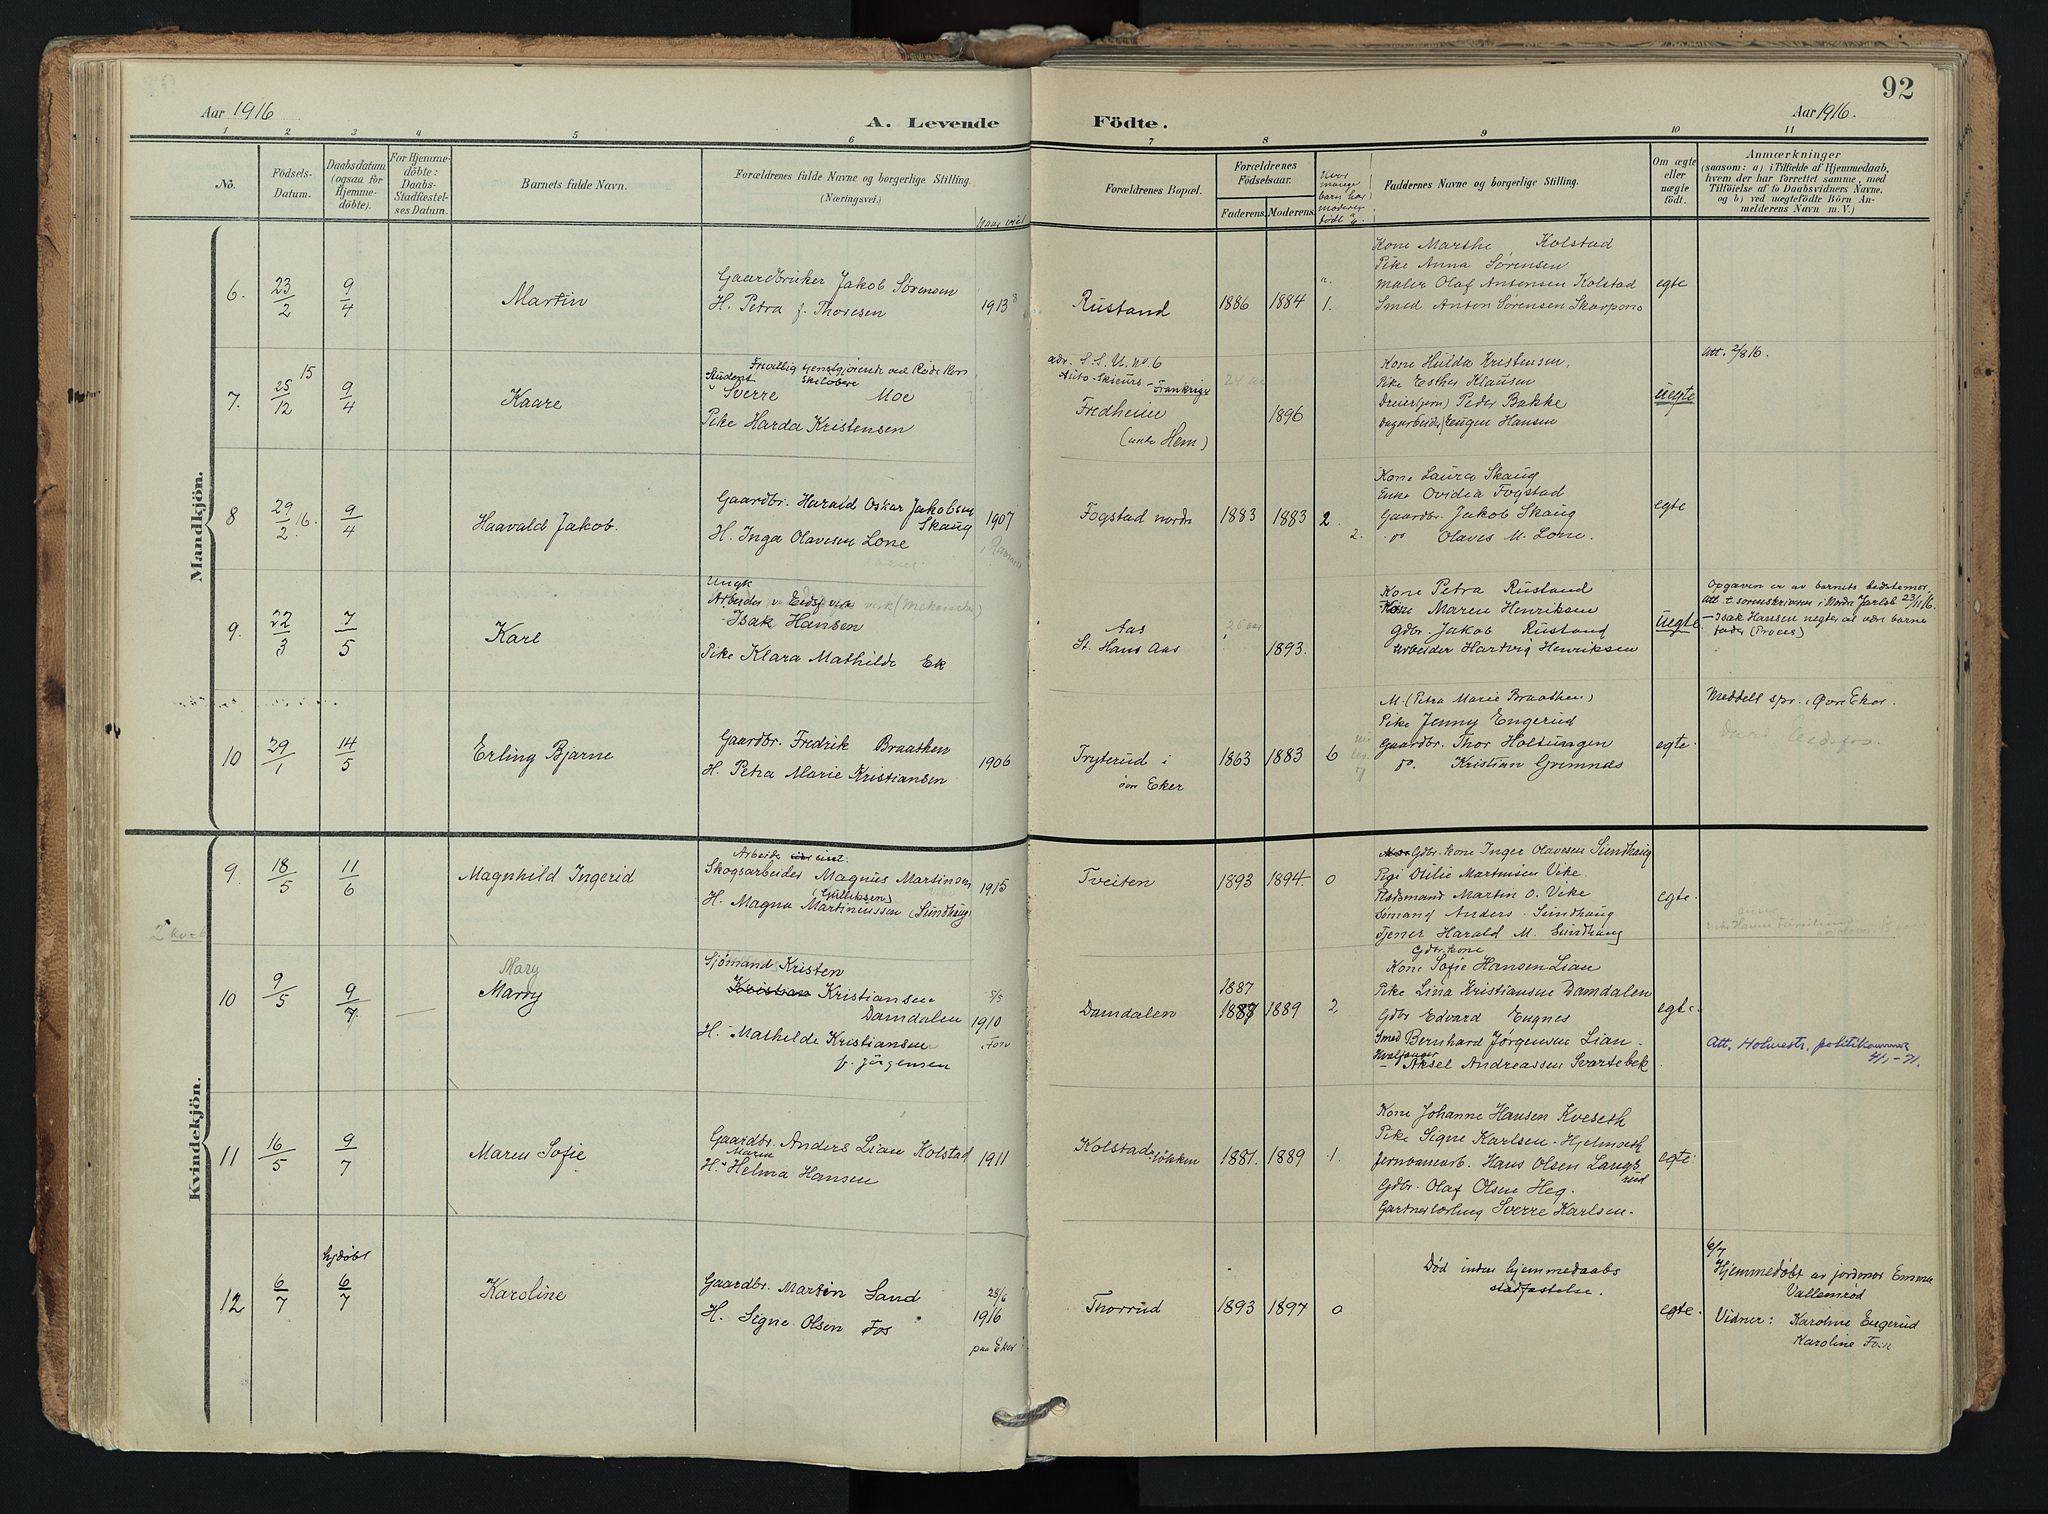 92
Aar 1916
A. Levende Födte.
Aar 1916.
1 2 3 4 5 6 7 8 9 10 11
No.
Födsels-Datum.
Daabsdatum (ogsaa för Hjemme-döbte).
For Hjemme-döbte: Daabs-Stadfæstel-ses Datum.
Barnets fulde Navn.
Forældrenes fulde Navne og borgerlige Stilling.
(Næringsvei.)
Naar viet
Forældrenes Bopæl.
Forældrenes Födselsaar.
Faderens. Moderens.
Hvor mange barn har moderen födt
Faddernes Navne og borgerlige Stilling.
Om ægte eller uægte födt.
Anmærkninger
(saasom: a) i Tilfælde af Hjemmedaab, hvem der har forrettet samme, med Tilföielse af to Daabsvidners Navne, og b) ved uægtefödte Börn An-melderens Navn m. V.)
Mandkjön.
6. 23/2 9/4 Martin
Gaardbruker Jakob Sørensen
H. Petra f. Thoresen
1913
Rustand 1886 1884 1.
Kone Marthe Kolstad
Pike Anna Sørensen
Maler Olaf Antonsen Kolstad
Smed Anton Sørensen Skarpono
egte
7. 25/12 15 9/4 Kaare
Frivillig tjenstgjørende ved Røde Kors
Student skiløbere
Sverre Moe
Pike Harda Kristensen
adr. S.S.U. No 6
Auto-Skieurs - Frankrige
Fredheim
(under Hem)
24 aar 1896
Kone Hulda Kristensen,
Pike Esther Klausen
Dreier (jern) Peder Bakke
Dagarbeider Eugen Hansen
uegte
Att. 2/8 16.
8 29/2 16. 9/4 Haavald Jakob.
Gaardbr. Harald Oskar Jakobsen
Skaug
H. Inga Olavesen Lone
1907
Ramnes
Fogstad nordre 1883 1883 2
2.
Kone Laura Skaug
Enke Ovidia Fogstad
Gaardbr. Jakob Skaug
do Olaves M. Lone.
egte
9. 22/3 7/5 Karl
Ungk
Arbeider v. Eidsf verk (Mekaniske)
Isak Hansen
Pike Klara Mathilde Ek
Aas
St. Hans Aas
26 aar 1893.
Kone Petra Rustand
Kone Maren Henriksen
Gdbr. Jakob Rustand
Arbeider Hartvig Henriksen
uegte
Opgaven er av barnets bedstemor.
Att. t. sorenskriveren i Nordre Jarlsb 23/11 16.
- Isak Hansen negter at være barnets
fader (Proces)
10 29/1 14/5 Erling Bjarne
Gaardbr. Fredrik Braathen
H. Petra Marie Kristiansen
1906
Tryterud i
øvre Eker
1863 1883 6
7
M. (Petra Marie Braathen)
Pike Jenny Engerud
Gaardbr. Thor Holtungen
do. Kristian Grimnæs
egte
Meddelt spr. i Øvre Eker.
Kvindekjön.
9. 18/5 11/6 Magnhild Ingerid
Arbeider
Skogsarbeider Magnus Martinsen
(Gulliksen)
H. Magna Martiniussen (Sundhaug)
1915
Tveiten 1893 1894. 0
Gdbr. kone Inger Olavesen Sundhaug
Pige Otilie Martinsen Vike
Kaarsmand Martin O. Vike
Sømand Anders Sundhaug
Tjener Harald M. Sundhaug
egte.
10 9/5 9/7 Mary
Marry
Sjømand Kristen
Kristian Kristiansen
Damdalen
H. Mathilde Kristiansen
f. Jørgensen
5/5
1910
Fon
Damdalen 1887
1887 1889 2
Gdbr. kone
Kone Sofie Hansen Lian
Pike Lina Kristiansen Damdalen
Gdbr Edvard Engnes
Smed Bernhard Jørgensen Lian.
Hvalfanger
Aksel Andreassen Svartebek
egte.
Att. Holmestr. politikammer
4/1 - 21.
11 16/5 9/7 Maren Sofie
Gaardbr. Anders Lian Kolstad
Maren
H. Helma Hansen
1911
Kolstadløkken 1881. 1889 1.
Kone Johanne Hansen Kveseth
Pike Signe Karlsen - Hjelmseth
Jernbanearb. Hans Olsen Langsrud
Gdbr. Olaf Olsen Heg.
Gartnerlærling Sverre Karlsen.
egte.
12 6/7 hjdøbt 6/7 Karoline
Gaardbr. Martin Sand
H. Signe Olsen Fos
28/6
1916
paa Eker
Thorrud 1893 1897 0
Død inden hjemmedaabs
stadfæstelse.
egte.
6/7
Hjemmedøbt av jordmor Emma
Vallemrød
Vidner: Karoline Engerud
Karoline Foss